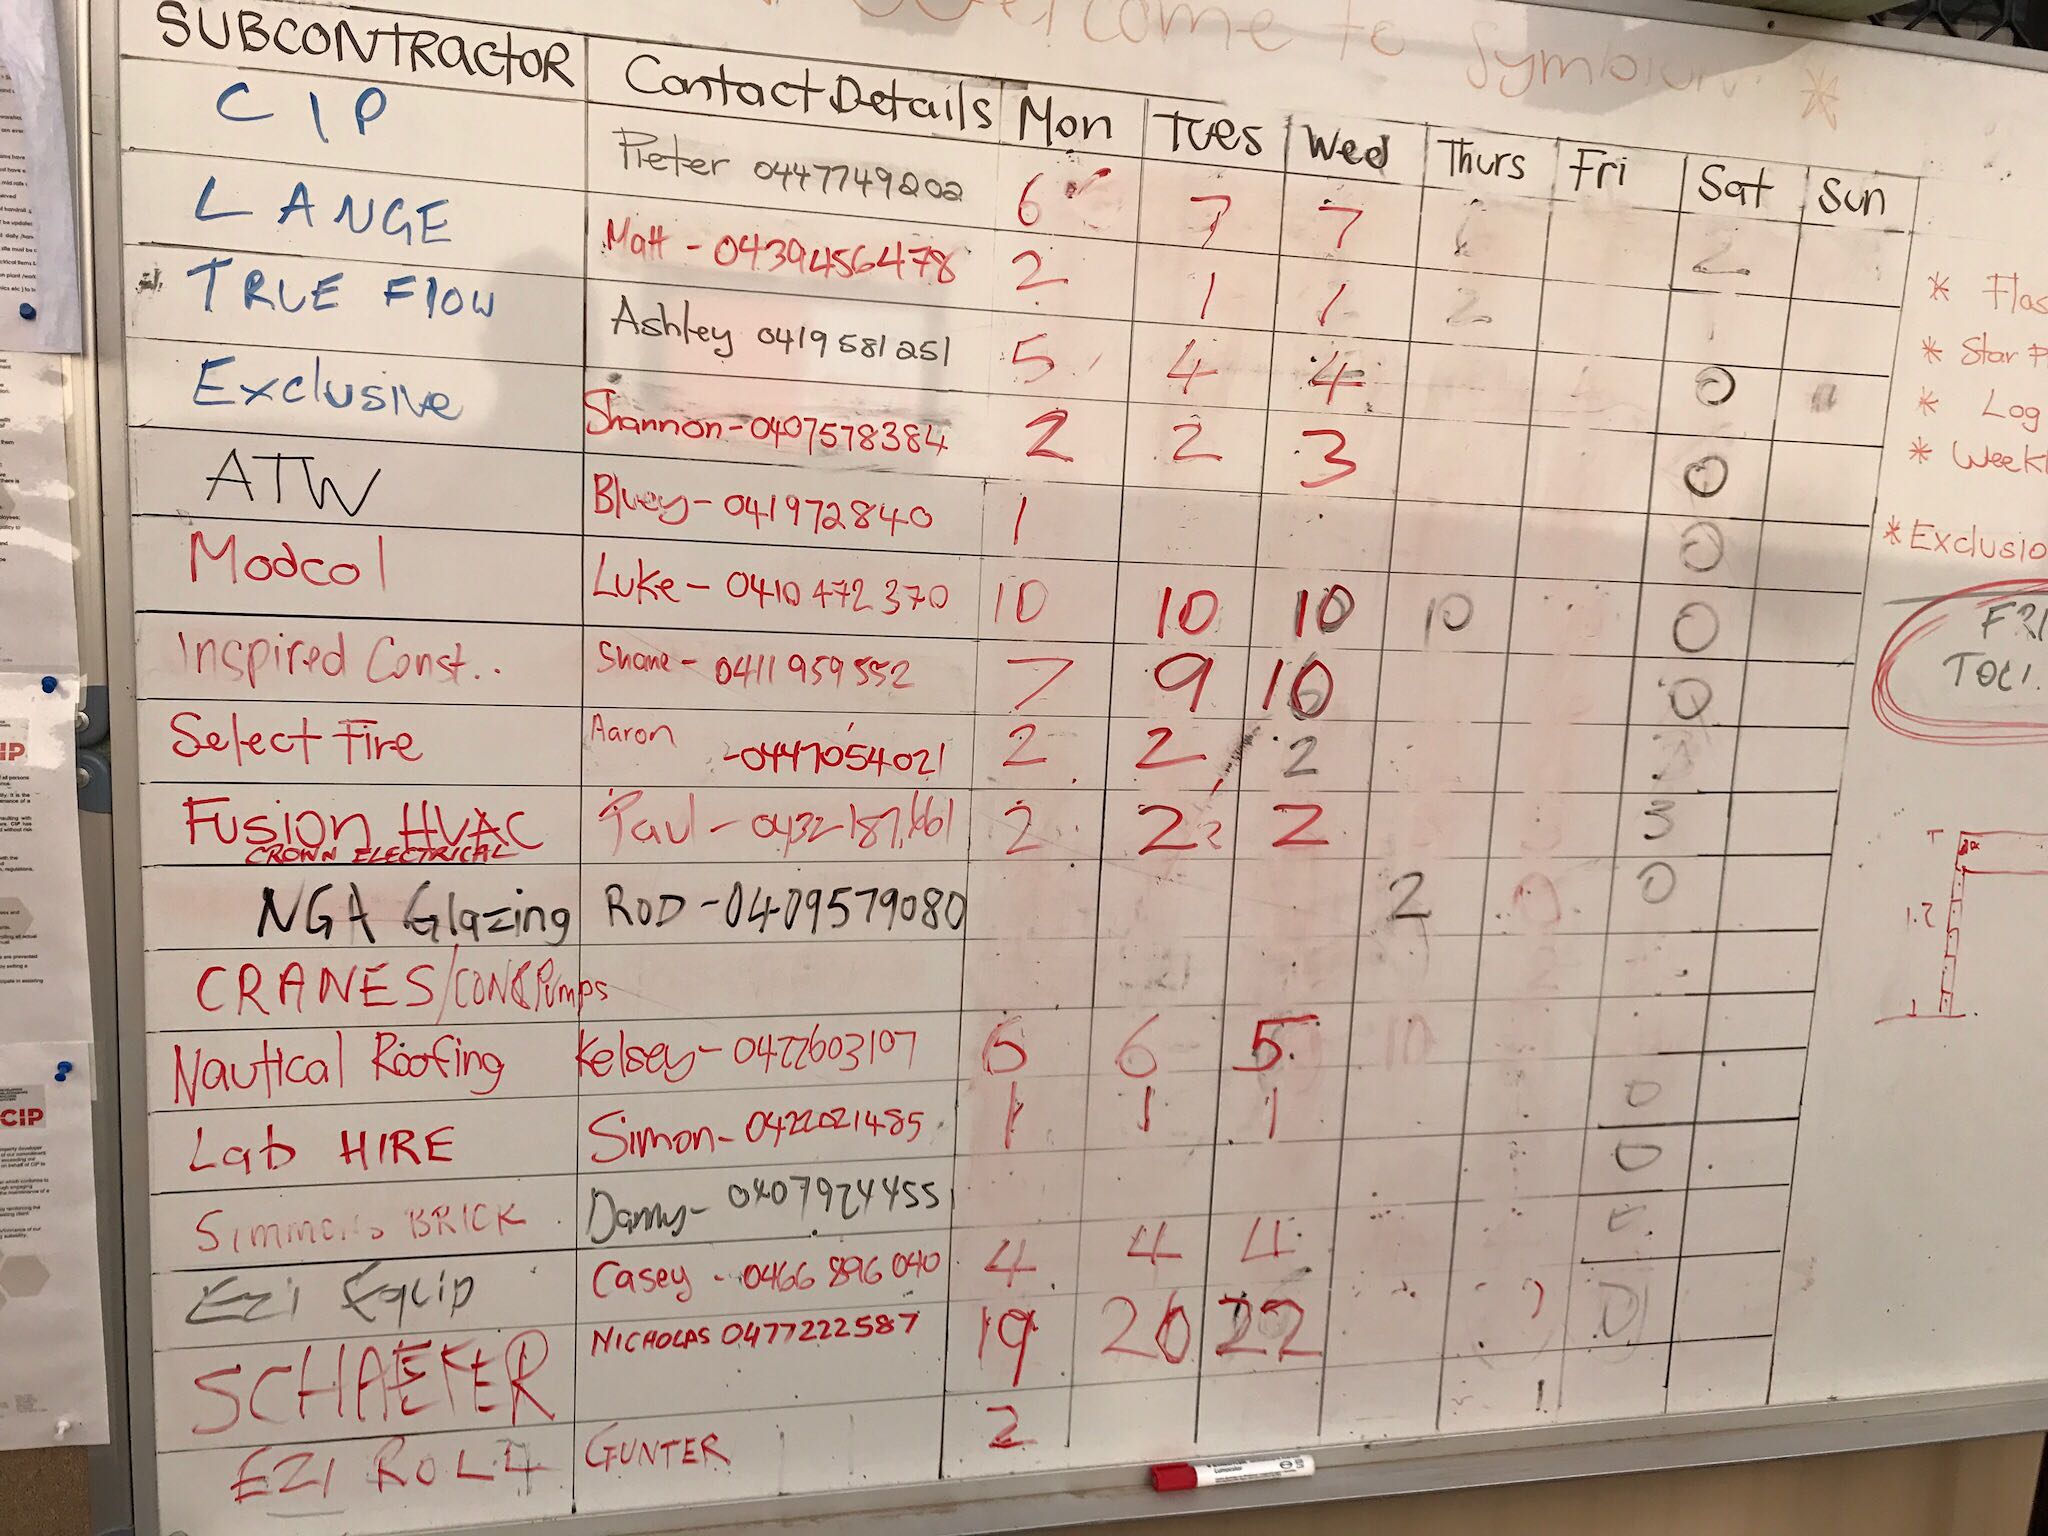 Welcome to Symbion *
SUBCONTRACTOR Contact Details Mon Tues Wed Thurs Fri Sat Sun
CIP Pieter 0447749202 6 7 7 2
LANGE Matt - 0439456478 2 1 1 2
TRUE Flow Ashley 0419581251 5 4 4 0
Exclusive Shannon - 0407578384 2 2 3 0
ATW Bluey - 041972840 1 0
Modcol Luke - 0410 472 370 10 10 10 10 0
Inspired Const.. Shane - 0411 959 552 7 9 10 0
Select Fire Aaron - 0447054021 2 2 2
Fusion HVAC Paul - 0432 187,661 2 2 2 3
CROWN ELECTRICAL
NGA Glazing ROD - 0409579080 2 0 0
CRANES/CONC Pumps
Nautical Roofing Kelsey - 0422603107 5 6 5 10
Lab HIRE Simon - 0422021485 1 1 1 0
Simmons BRICK Danny - 0407924455 0
Ezi Equip Casey - 0466 896 040 4 4 4
SCHAEFER NICHOLAS 0477222587 19 20 22 0
EZI ROLL GUNTER 2
* Flas
* Star P
* Log
* Weekl
* Exclusio
FRI
1.2
CIP